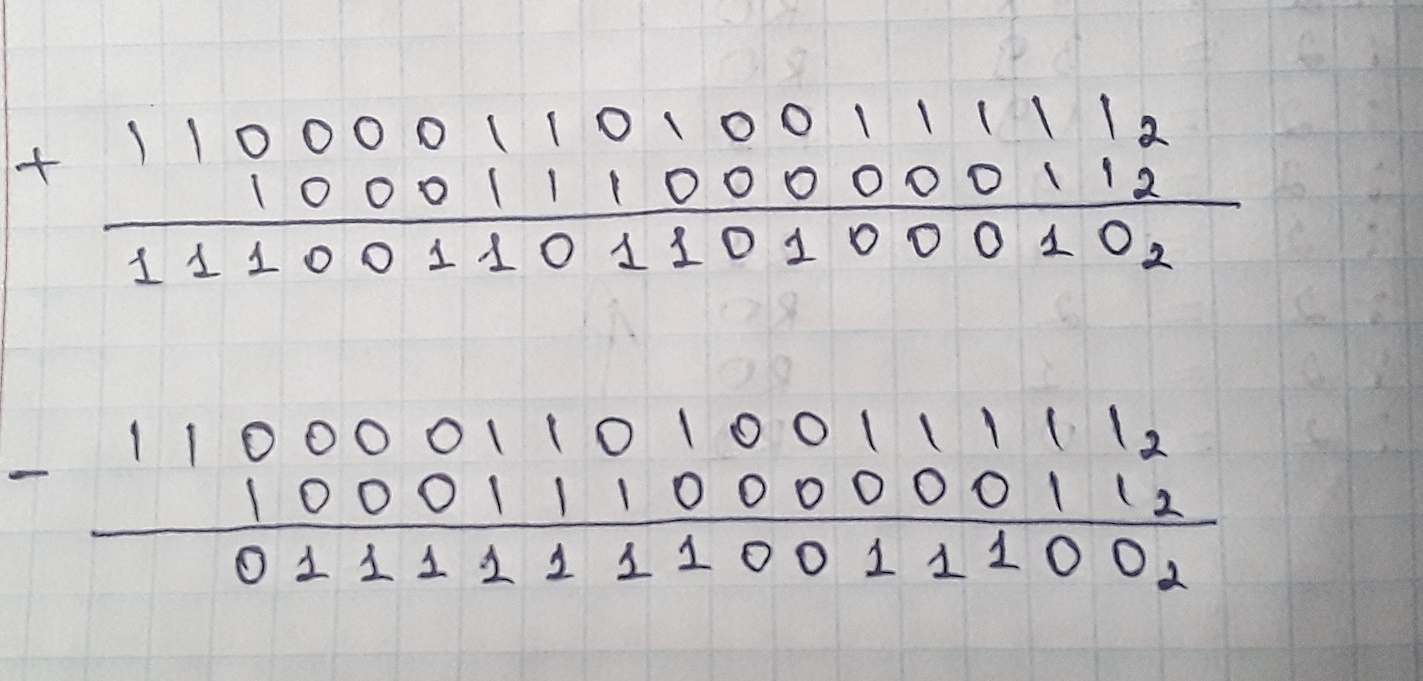 + 1 1 0 0 0 0 1 1 0 1 0 0 1 1 1 1 1₂
1 0 0 0 1 1 1 0 0 0 0 0 0 1 1₂
1 1 1 0 0 1 1 0 1 1 0 1 0 0 0 1 0₂
- 1 1 0 0 0 0 1 1 0 1 0 0 1 1 1 1 1₂
1 0 0 0 1 1 1 0 0 0 0 0 0 1 1₂
0 1 1 1 1 1 1 1 0 0 1 1 1 0 0₂